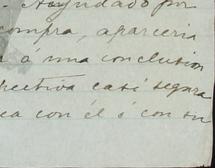 - Ayudado por
compra, aparceria
á una conclusión
pectiva casi segura
ea con él ó con su